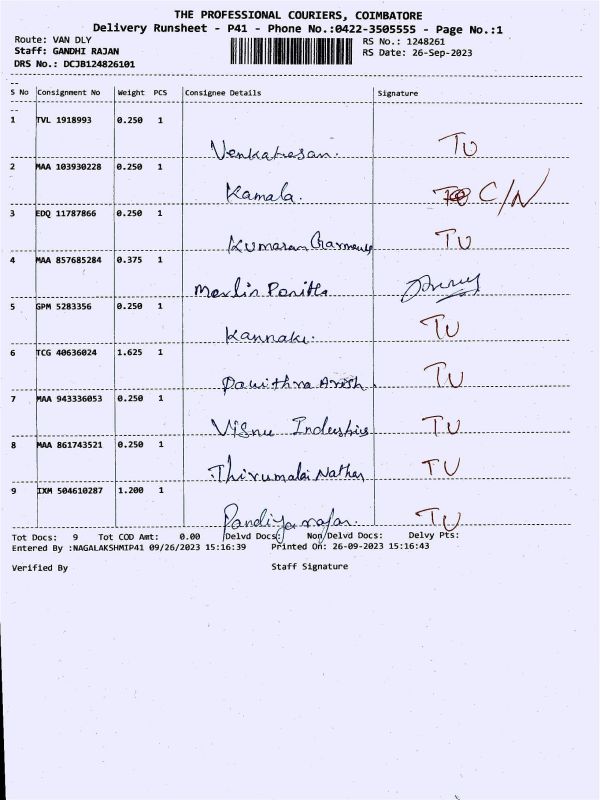 THE PROFESSIONAL COURIERS, COIMBATORE
Delivery Runsheet - P41 - Phone No.:0422-3505555 - Page No.:1
Route: VAN DLY RS No.: 1248261
Staff: GANDHI RAJAN RS Date: 26-Sep-2023
DRS No.: DCJB124826101
S No Consignment No Weight PCS Consignee Details Signature
1 TVL 1918993 0.250 1
Venkatesan. TU
2 MAA 103930228 0.250 1
Kamala. C/N
3 EDQ 11787866 0.250 1
Kumaran Garments TU
4 MAA 857685284 0.375 1
Merlin
5 GPM 5283356 0.250 1
Kannaki. TU
6 TCG 40636024 1.625 1
Pavithra TU
7 MAA 943336053 0.250 1
Visnu Industries TU
8 MAA 861743521 0.250 1
Thirumalai Nathan TU
9 IXM 504610287 1.200 1
Pandiyarajan. TU
Tot Docs: 9 Tot COD Amt: 0.00 Delvd Docs: Non Delvd Docs: Delvy Pts:
Entered By :NAGALAKSHMIP41 09/26/2023 15:16:39 Printed On: 26-09-2023 15:16:43
Verified By Staff Signature